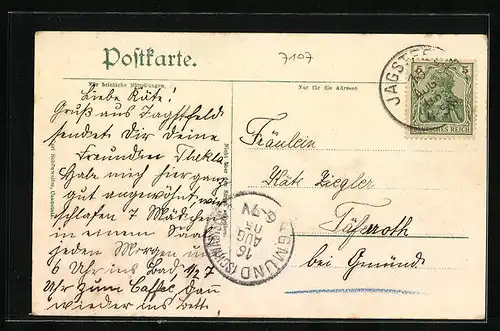 Postkarte.
7107
Für briefliche Mitteilungen.
Nur für die Adresse.
Liebe Käte!
Gruß aus Jagstfeld
sendet Dir deine
Freundin Thekla
Habe mich hier ganz
gut angewöhnt wir
schlafen 7 Mädchen
in einem Saal
jeden Morgen um
6 Uhr ins Bad, 1/2 7
Uhr zum Caffee, Dann
wieder ins Bett.
Fräulein
Käte Ziegler
Täferroth
bei Gmünd
JAGSTFE
5 5
DEUTSCHES REICH
GMUND (SCHWÄB.)
16
AUG
6-7N